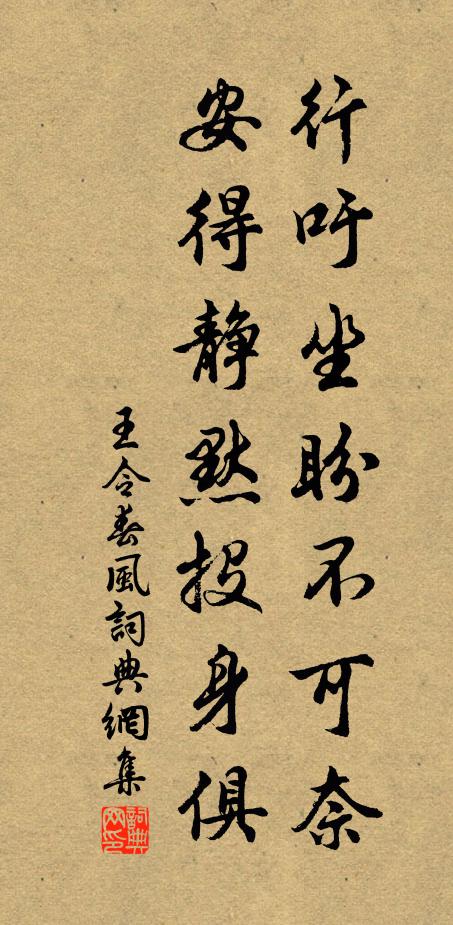 行吁坐盼不可奈
安得静默投身俱
王令春風詞典網集
詞典網印